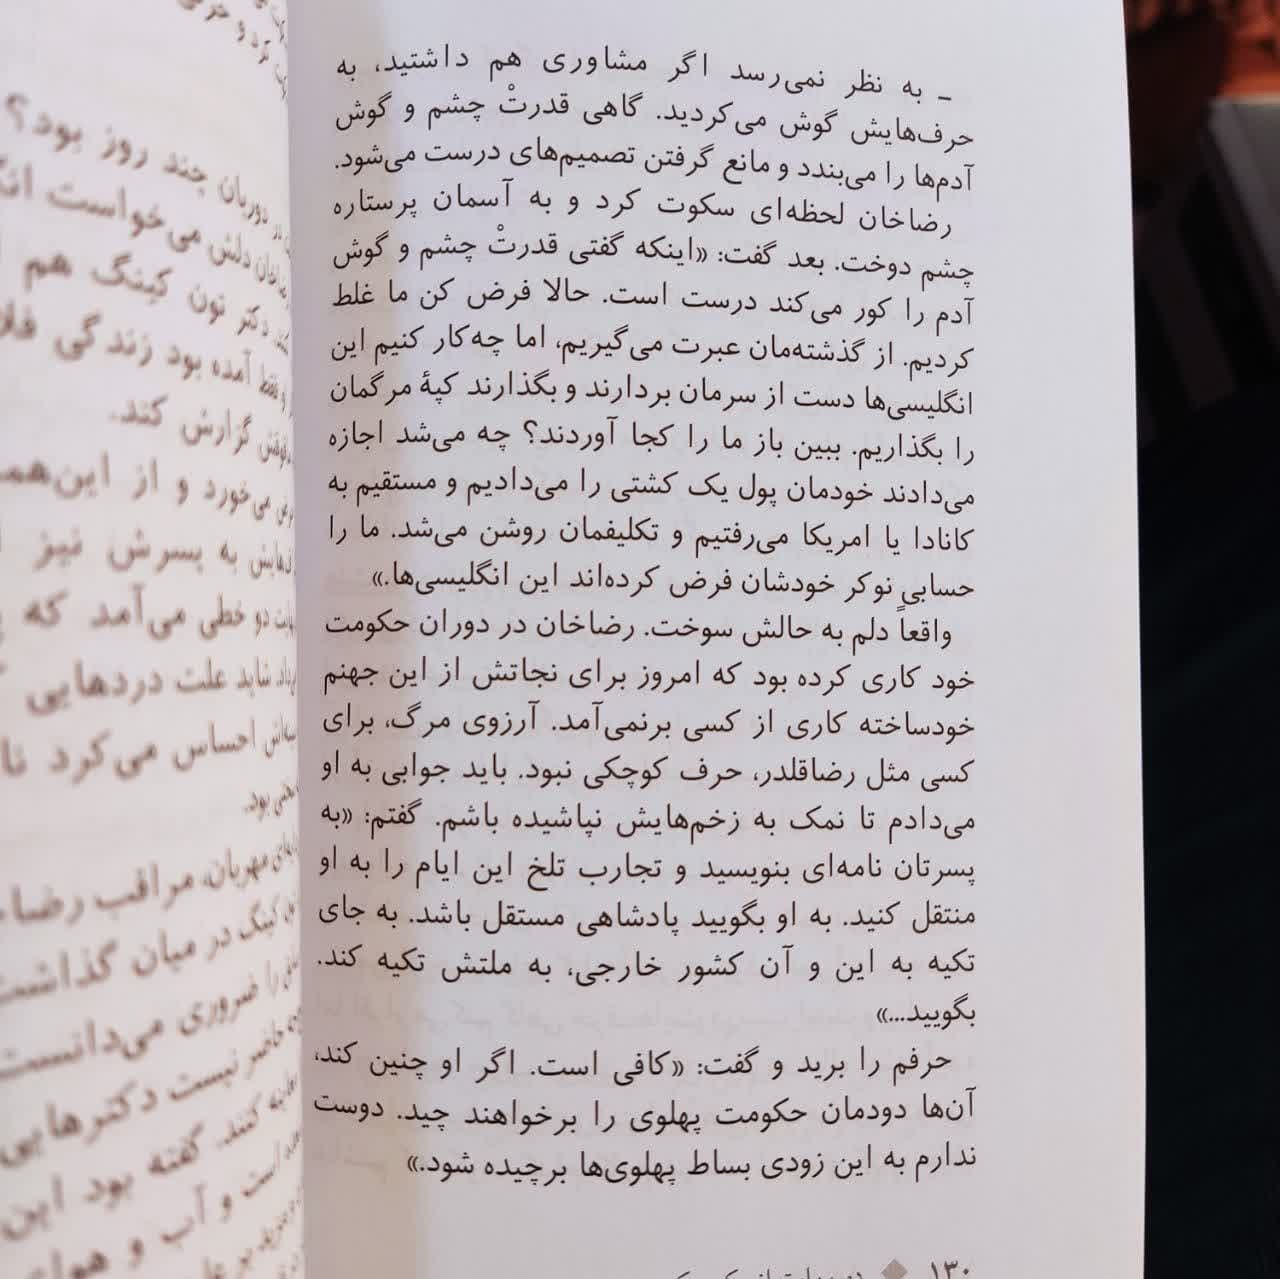 ـ به نظر نمی‌رسد اگر مشاوری هم داشتید، به
حرف‌هایش گوش می‌کردید. گاهی قدرتْ چشم و گوش
آدم‌ها را می‌بندد و مانع گرفتن تصمیم‌های درست می‌شود.
رضاخان لحظه‌ای سکوت کرد و به آسمان پرستاره
چشم دوخت. بعد گفت: «اینکه گفتی قدرتْ چشم و گوش
آدم را کور می‌کند درست است. حالا فرض کن ما غلط
کردیم. از گذشته‌مان عبرت می‌گیریم، اما چه‌کار کنیم این
انگلیسی‌ها دست از سرمان بردارند و بگذارند کپهٔ مرگمان
را بگذاریم. ببین باز ما را کجا آوردند؟ چه می‌شد اجازه
می‌دادند خودمان پول یک کشتی را می‌دادیم و مستقیم به
کانادا یا امریکا می‌رفتیم و تکلیفمان روشن می‌شد. ما را
حسابی نوکر خودشان فرض کرده‌اند این انگلیسی‌ها.»
واقعاً دلم به حالش سوخت. رضاخان در دوران حکومت
خود کاری کرده بود که امروز برای نجاتش از این جهنم
خودساخته کاری از کسی برنمی‌آمد. آرزوی مرگ، برای
کسی مثل رضاقلدر، حرف کوچکی نبود. باید جوابی به او
می‌دادم تا نمک به زخم‌هایش نپاشیده باشم. گفتم: «به
پسرتان نامه‌ای بنویسید و تجارب تلخ این ایام را به او
منتقل کنید. به او بگویید پادشاهی مستقل باشد. به جای
تکیه به این و آن کشور خارجی، به ملتش تکیه کند.
بگویید...»
حرفم را برید و گفت: «کافی است. اگر او چنین کند،
آن‌ها دودمان حکومت پهلوی را برخواهند چید. دوست
ندارم به این زودی بساط پهلوی‌ها برچیده شود.»
۱۳۰
دوربان چند روز بود؟
دلش می‌خواست
دکتر نون کینگ هم
فقط آمده بود زندگی
گزارش کند.
می‌خورد و از این
به پسرش نیز
دو خطی می‌آمد که
شاید علت دردهایی
احساس می‌کرد
بود.
مهربان، مراقب
کینگ در میان گذاشت
را ضروری می‌دانست
حاضر نیست دکترهایی
کنند. گفته بود این
است و آب و هوای